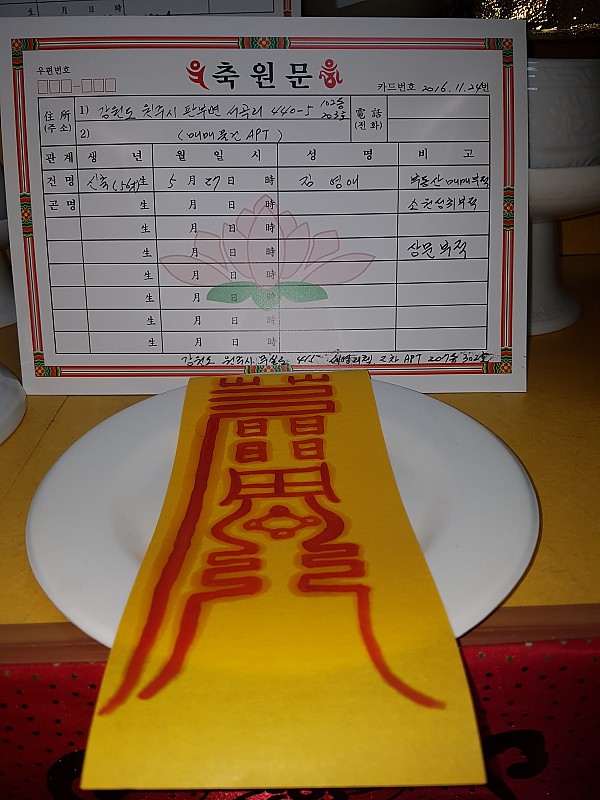 生 月 日 時
우편번호
축원문
카드번호 2016.11.24번
住所 (주소) 1) 강원도 원주시 판부면 서곡리 440-5 102동 203호 電話 (전화)
2) (매매물건 APT)
관계 생 년 월 일 시 성 명 비 고
건명 신축(56세)生 5月 27日 時 김영애 부동산매매부적
곤명 生 月 日 時 소원성취부적
生 月 日 時
生 月 日 時 상문부적
生 月 日 時
生 月 日 時
生 月 日 時
生 月 日 時
강원도 원주시 무실동 2차 APT 207동 302호